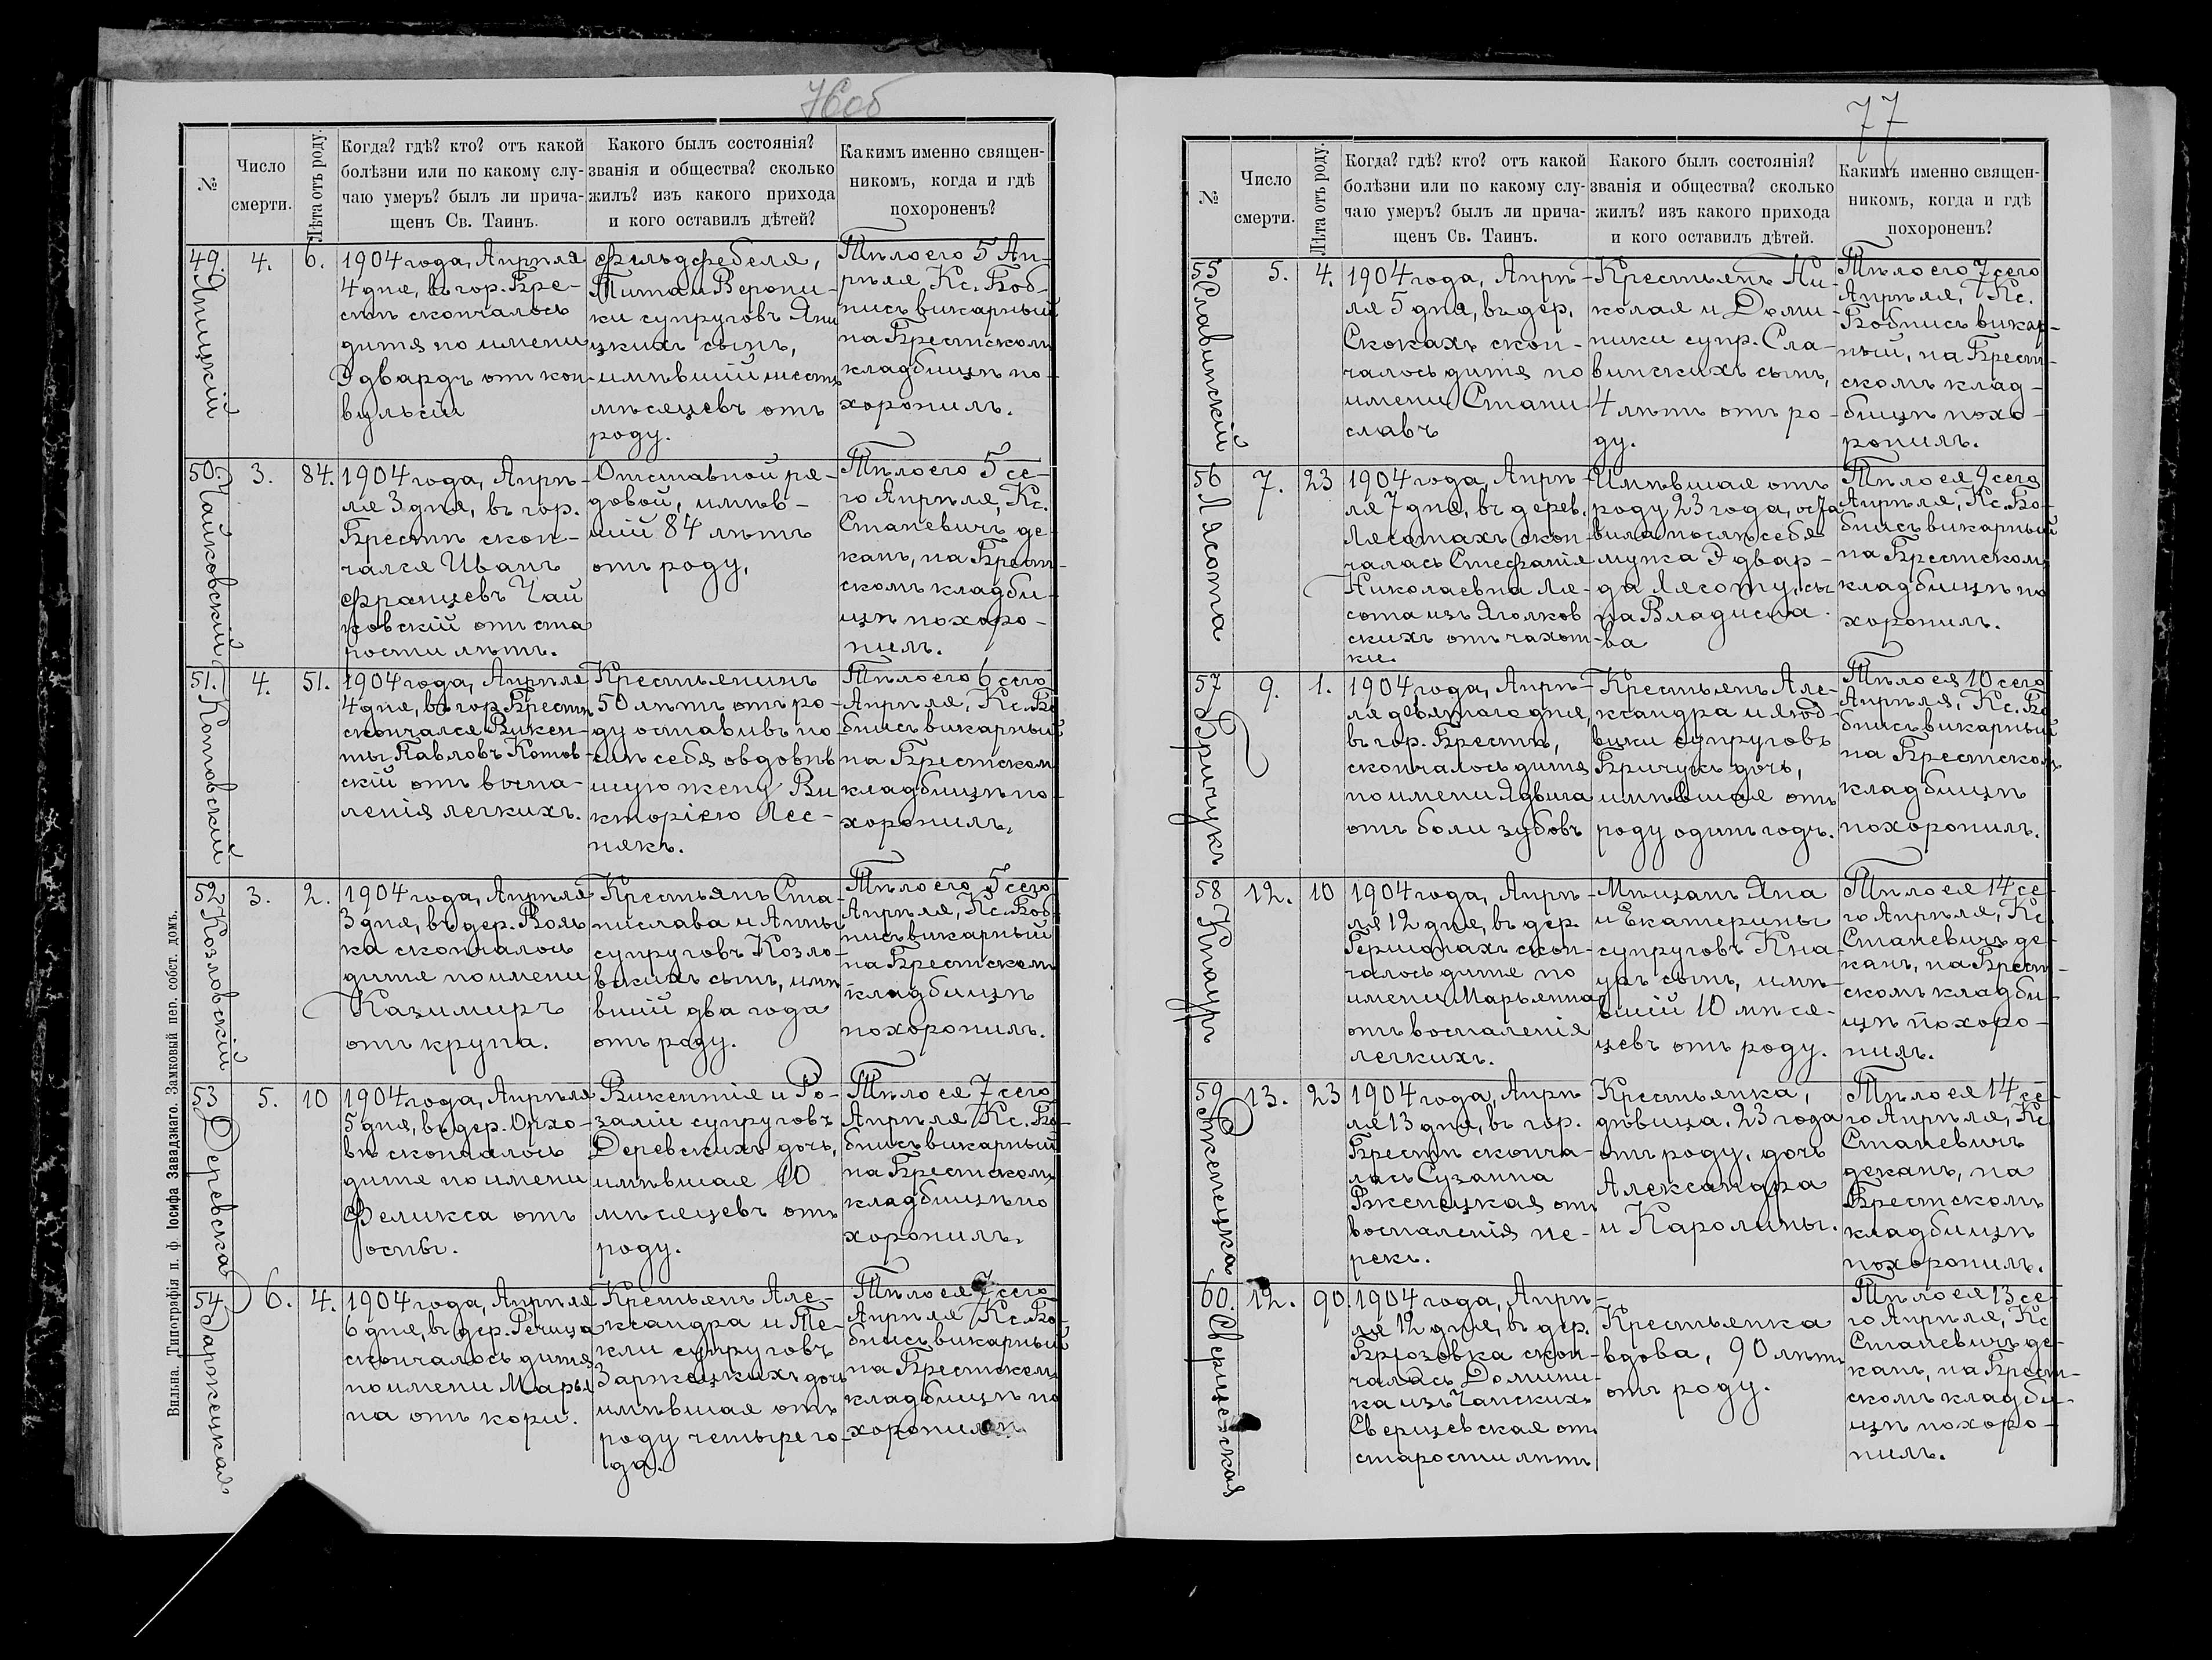 76об
№
Число
смерти.
Лѣта отъ роду.
Когда? гдѣ? кто? отъ какой
болѣзни или по какому слу-
чаю умеръ? былъ ли прича-
щенъ Св. Таинъ.
Какого былъ состоянія?
званія и общества? сколько
жилъ? изъ какого прихода
и кого оставилъ дѣтей?
Какимъ именно священ-
никомъ, когда и гдѣ
похороненъ?
49.
Яницкій
4.
6.
1904 года, Апрѣля
4 дня, въ гор. Бре-
стѣ скончалось
дитя по имени
Эдвардъ отъ кон-
вульсіи
Фельдфебеля,
Тита и Верони-
ки супруговъ Яни
цкихъ сынъ,
имѣвшій шесть
мѣсяцевъ отъ
роду.
Тѣло его 5 Ап-
рѣля, Кс. Боб-
нисъ викарный
на Брестскомъ
кладбищѣ по-
хоронилъ.
50.
Чайковскій
3.
84.
1904 года, Апрѣ-
ля 3 дня, въ гор.
Брестѣ скон-
чался Иванъ
Францевъ Чай
ковскій отъ ста
рости лѣтъ.
Отставной ря-
довой, имѣв-
шій 84 лѣтъ
отъ роду,
Тѣло его 5 се-
го Апрѣля, Кс.
Станевичъ де-
канъ, на Брест-
скомъ кладби-
щѣ похоро-
нилъ.
51.
Котовскій
4.
51.
1904 года, Апрѣля
4 дня, въ гор. Брестѣ
скончался Викен-
ты Павловъ Котов-
скій отъ воспа-
ленія легкихъ.
Крестьянинъ
50 лѣтъ отъ ро-
ду оставивъ по-
слѣ себя овдовѣ
шую жену Ви
кторію Лес-
някъ.
Тѣло его 6 сего
Апрѣля, Кс. Бо
бнисъ викарный
на Брестском
кладбищѣ по-
хоронилъ.
52
Козловскій
3.
2.
1904 года, Апрѣля
3 дня, въ дер. Воль
ка скончалось
дитя по имени
Казимиръ
отъ крупа.
Крестьянъ Ста-
нислава и Анны
супруговъ Козло-
вскихъ сынъ, имѣ
вшій два года
отъ роду.
Тѣло его 5 сего
Апрѣля, Кс. Боб
нисъ викарный
на Брестскомъ
кладбищѣ
похоронилъ.
53
Деревская
5.
10
1904 года, Апрѣля
5 дня, въ дер. Орхо-
вѣ скончалось
дитя по имени
Феликса отъ
оспы.
Викентія и Ро-
заліи супруговъ
Деревскихъ дочь,
имѣвшая 10
мѣсяцевъ отъ
роду.
Тѣло ея 7 сего
Апрѣля Кс. Бо-
бнисъ викарный
на Брестскомъ
кладбищѣ по
хоронилъ.
54
Заржецкая
6.
4.
1904 года, Апрѣля
6 дня, въ дер. Речица
скончалось дитя
по имени Марья
на отъ кори.
Крестьянъ Але-
ксандра и Те-
кли супруговъ
Заржецкихъ дочь
имѣвшая отъ
роду четыре го-
да.
Тѣло ея 7 сего
Апрѣля Кс. Бо-
бнисъ викарный
на Брестскомъ
кладбищѣ по
хоронилъ
Вильна. Типографія п. ф. Іосифа Завадзкаго. Замковый пер. собст. домъ.
77
№
Число
смерти.
Лѣта отъ роду.
Когда? гдѣ? кто? отъ какой
болѣзни или по какому слу-
чаю умеръ? былъ ли прича-
щенъ Св. Таинъ.
Какого былъ состоянія?
званія и общества? сколько
жилъ? изъ какого прихода
и кого оставилъ дѣтей.
Какимъ именно священ-
никомъ, когда и гдѣ
похороненъ?
55
Славинскій
5.
4.
1904 года, Апрѣ-
ля 5 дня, въ дер.
Скокахъ скон-
чалось дитя по
имени Стани-
славъ
Крестьянъ Ни-
колая и Доми-
ники супр. Сла-
винскихъ сынъ,
4 лѣтъ отъ ро-
ду.
Тѣло его 7 сего
Апрѣля, Кс.
Бобнисъ викар-
ный, на Брест-
скомъ клад-
бищѣ похо-
ронилъ.
56
Лясота
7.
23
1904 года, Апрѣ-
ля 7 дня, въ дерев.
Лясотахъ скон-
чалась Стефанія
Николаевна Ля-
сота изъ Яголков
скихъ отъ чахот-
ки.
Имѣвшая отъ
роду 23 года, оста
вила послѣ себя
мужа Эдвар-
да Лясоту, сы
на Владисла
ва
Тѣло ея 9 сего
Апрѣля, Кс. Бо-
бнисъ викарный
на Брестскомъ
кладбищѣ по
хоронилъ.
57
Бричукъ
9.
1.
1904 года, Апрѣ-
ля девятаго дня,
въ гор. Брестѣ,
скончалось дитя
по имени Ядвига
отъ боли зубовъ
Крестьянъ Але-
ксандра и Люд-
вики супруговъ
Бричукъ дочь,
имѣвшая отъ
роду одинъ годъ.
Тѣло ея 10 сего
Апрѣля, Кс. Бо
бнисъ викарный
на Брестскомъ
кладбищѣ
похоронилъ.
58
Кнауръ
12.
10
1904 года, Апрѣ-
ля 12 дня, въ дер.
Гершонахъ скон-
чалось дитя по
имени Марьянна
отъ воспаленія
легкихъ.
Мѣщанъ Яна
и Екатерины
супруговъ Кна-
уръ сынъ, имѣ-
вшій 10 мѣся-
цевъ отъ роду.
Тѣло ея 14 се-
го Апрѣля, Кс.
Станевичъ де-
канъ, на Брест-
скомъ кладби-
щѣ похоро-
нилъ.
59
Ржепецка
13.
23
1904 года, Апрѣ
ля 13 дня, въ гор.
Брестѣ сконча-
лась Сузанна
Ржепецкая отъ
воспаленія не-
рекъ.
Крестьянка,
дѣвица. 23 года
отъ роду, дочь
Александра
и Каролины.
Тѣло ея 14 се-
го Апрѣля, Кс
Станевичъ
деканъ, на
Брестскомъ
кладбищѣ
похоронилъ.
60.
Сверщевская
12.
90.
1904 года, Апрѣ-
ля 12 дня, въ дер.
Брюзовка скон-
чалась Домини-
ка изъ Чапскихъ
Сверщевская отъ
старости лѣтъ
Крестьянка
вдова, 90 лѣтъ
отъ роду.
Тѣло ея 13 се-
го Апрѣля, Кс
Станевичъ де-
канъ, на Брест-
скомъ кладби-
щѣ похоро-
нилъ.